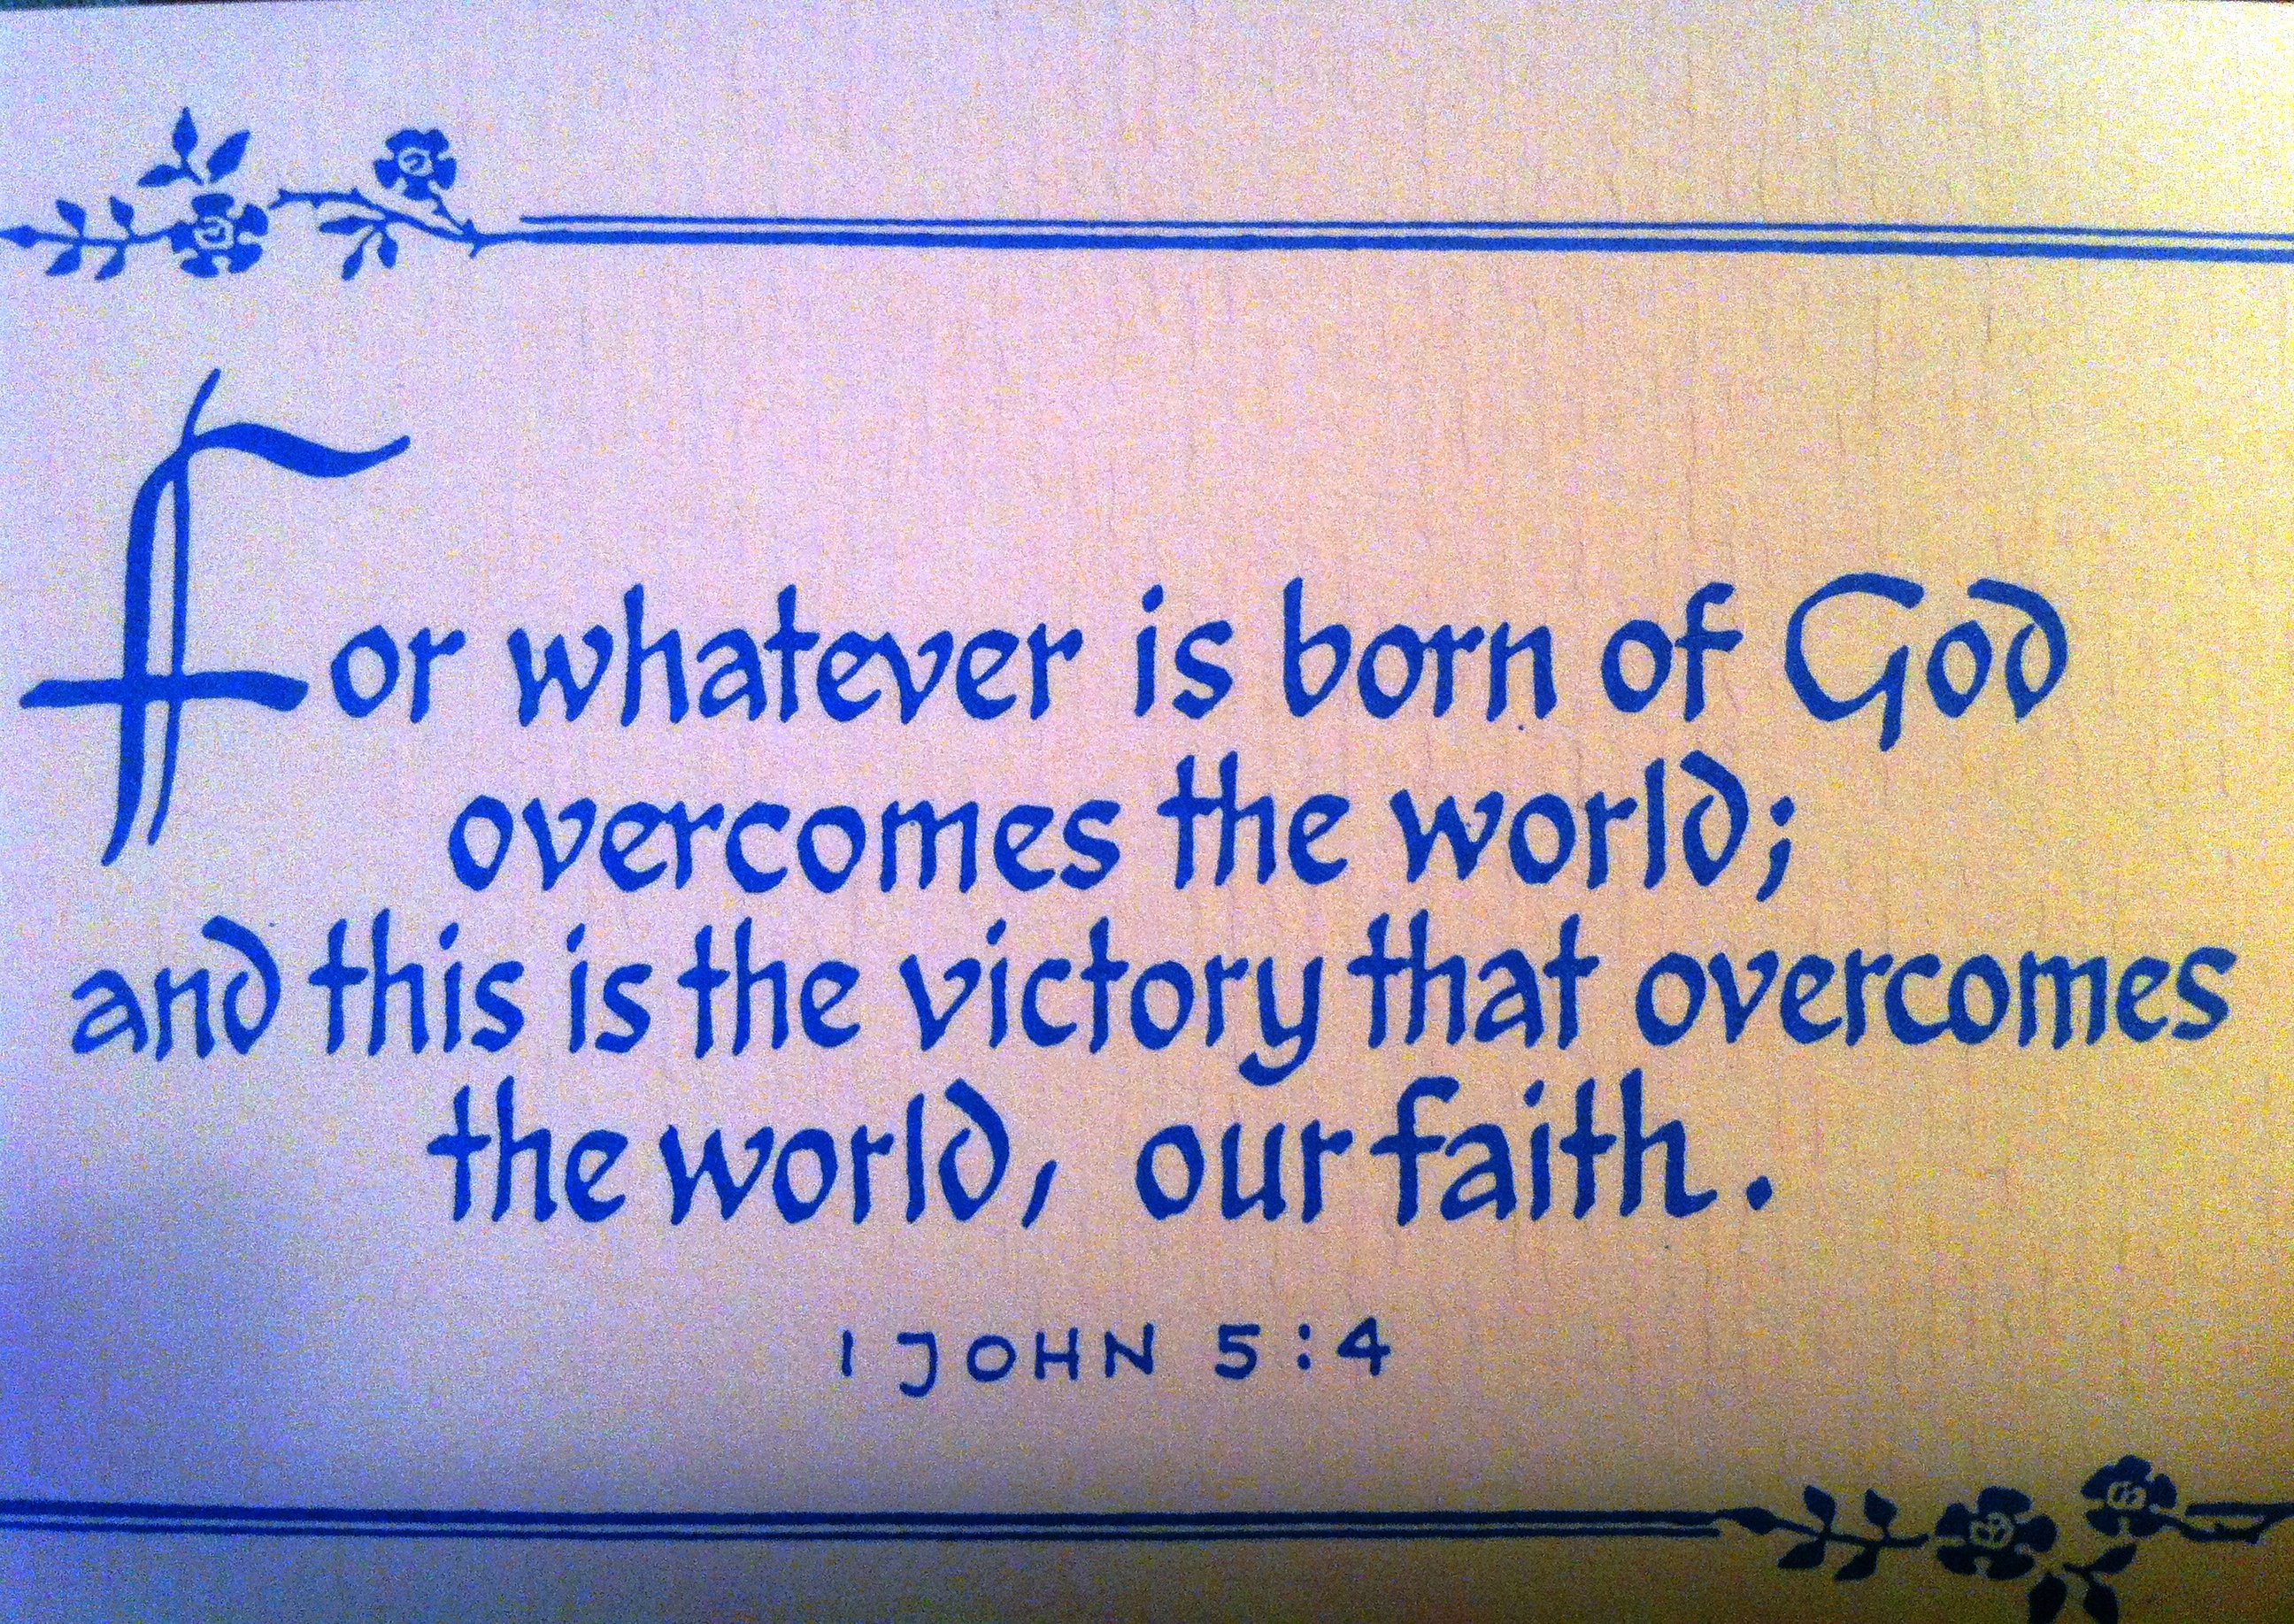 For whatever is born of God
overcomes the world;
and this is the victory that overcomes
the world, our faith.
1 JOHN 5:4